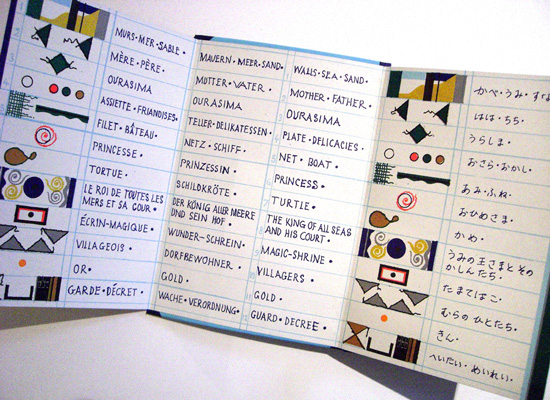 MURS • MER • SABLE •
MÈRE • PÈRE •
OURASIMA
ASSIETTE • FRIANDISES •
FILET • BÂTEAU •
PRINCESSE •
TORTUE •
LE ROI DE TOUTES LES
MERS ET SA COUR •
ÉCRIN-MAGIQUE •
VILLAGEOIS •
OR •
GARDE • DÉCRET •
MAUERN • MEER • SAND •
MUTTER • VATER •
OURASIMA
TELLER • DELIKATESSEN •
NETZ • SCHIFF •
PRINZESSIN •
SCHILDKRÖTE •
DER KÖNIG ALLER MEERE
UND SEIN HOF •
WUNDER-SCHREIN •
DORFBEWOHNER •
GOLD •
WACHE • VERORDNUNG •
WALLS • SEA • SAND •
MOTHER • FATHER •
OURASIMA
PLATE • DELICACIES •
NET • BOAT •
PRINCESS •
TURTLE •
THE KING OF ALL SEAS
AND HIS COURT •
MAGIC-SHRINE •
VILLAGERS •
GOLD •
GUARD • DECREE •
かべ・うみ・すな
はは・ちち・
うらしま・
おさら・おかし・
あみ・ふね・
おひめさま・
かめ・
うみの王さまとその
かしんたち・
たまてばこ・
むらのひとたち・
きん・
へいたい・めいれい・